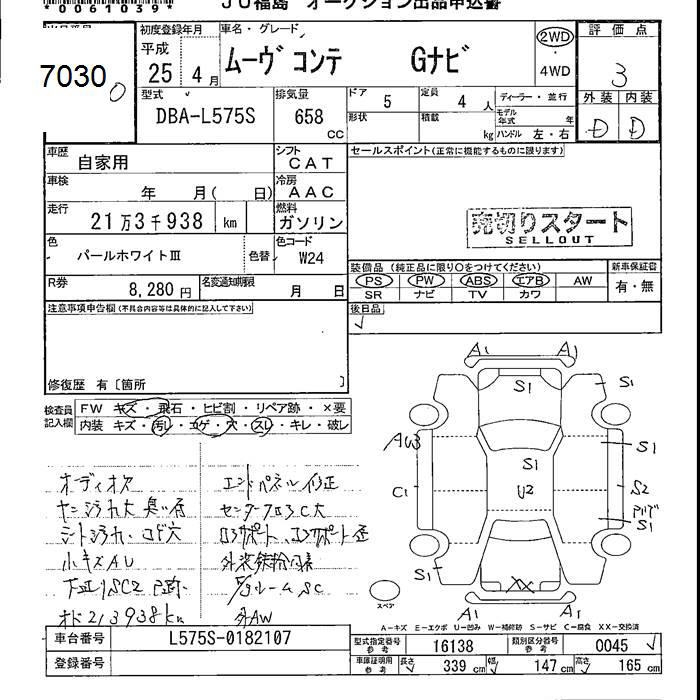 *0061039*
JU福島 オークション出品申込書
7030
初度登録年月 車名・グレード 2WD 評価点
平成
25 4月 ムーヴ コンテ Gナビ 4WD 3
外装 内装
型式 排気量 ドア 5 定員 4人 ディーラー・並行
DBA-L575S 658 CC 形状 積載 kg モデル年式 年 D D
ハンドル 左・右
車歴 自家用 シフト CAT セールスポイント(正常に機能するものに限ります)
車検 年 月( 日) 冷房 AAC
走行 21万3千938 km 燃料 ガソリン
売切りスタート
SELLOUT
色 パールホワイトⅢ 色替 色コード W24
装備品(純正品に限り○をつけてください) 新車保証書
R券 8,280円 名変通知期限 月 日
PS PW ABS エアB AW 有・無
SR ナビ TV カワ
注意事項申告欄(不具合内容等は具体的に記入して下さい) 後日品
修復歴 有〔箇所 〕
検査員記入欄 FW キズ・飛石・ヒビ割・リペア跡・×要
内装 キズ・汚レ・コゲ・穴・スレ・キレ・破レ
A1 A1
S1 S1
AW3 S1
S1
C1 U2 S2
S1
S1 XX
スペア
A1 A1
オーディオ欠 エンドパネル修正
小キズAU
外AW
オド213938km
A-キズ E-エクボ U-凹み W-補修跡 S-サビ C-腐食 XX-交換済
車台番号 L575S-0182107 型式指定番号 参考 16138 類別区分番号 参考 0045
登録番号 車庫証明用 参考 長さ 339cm 幅 147cm 高さ 165cm